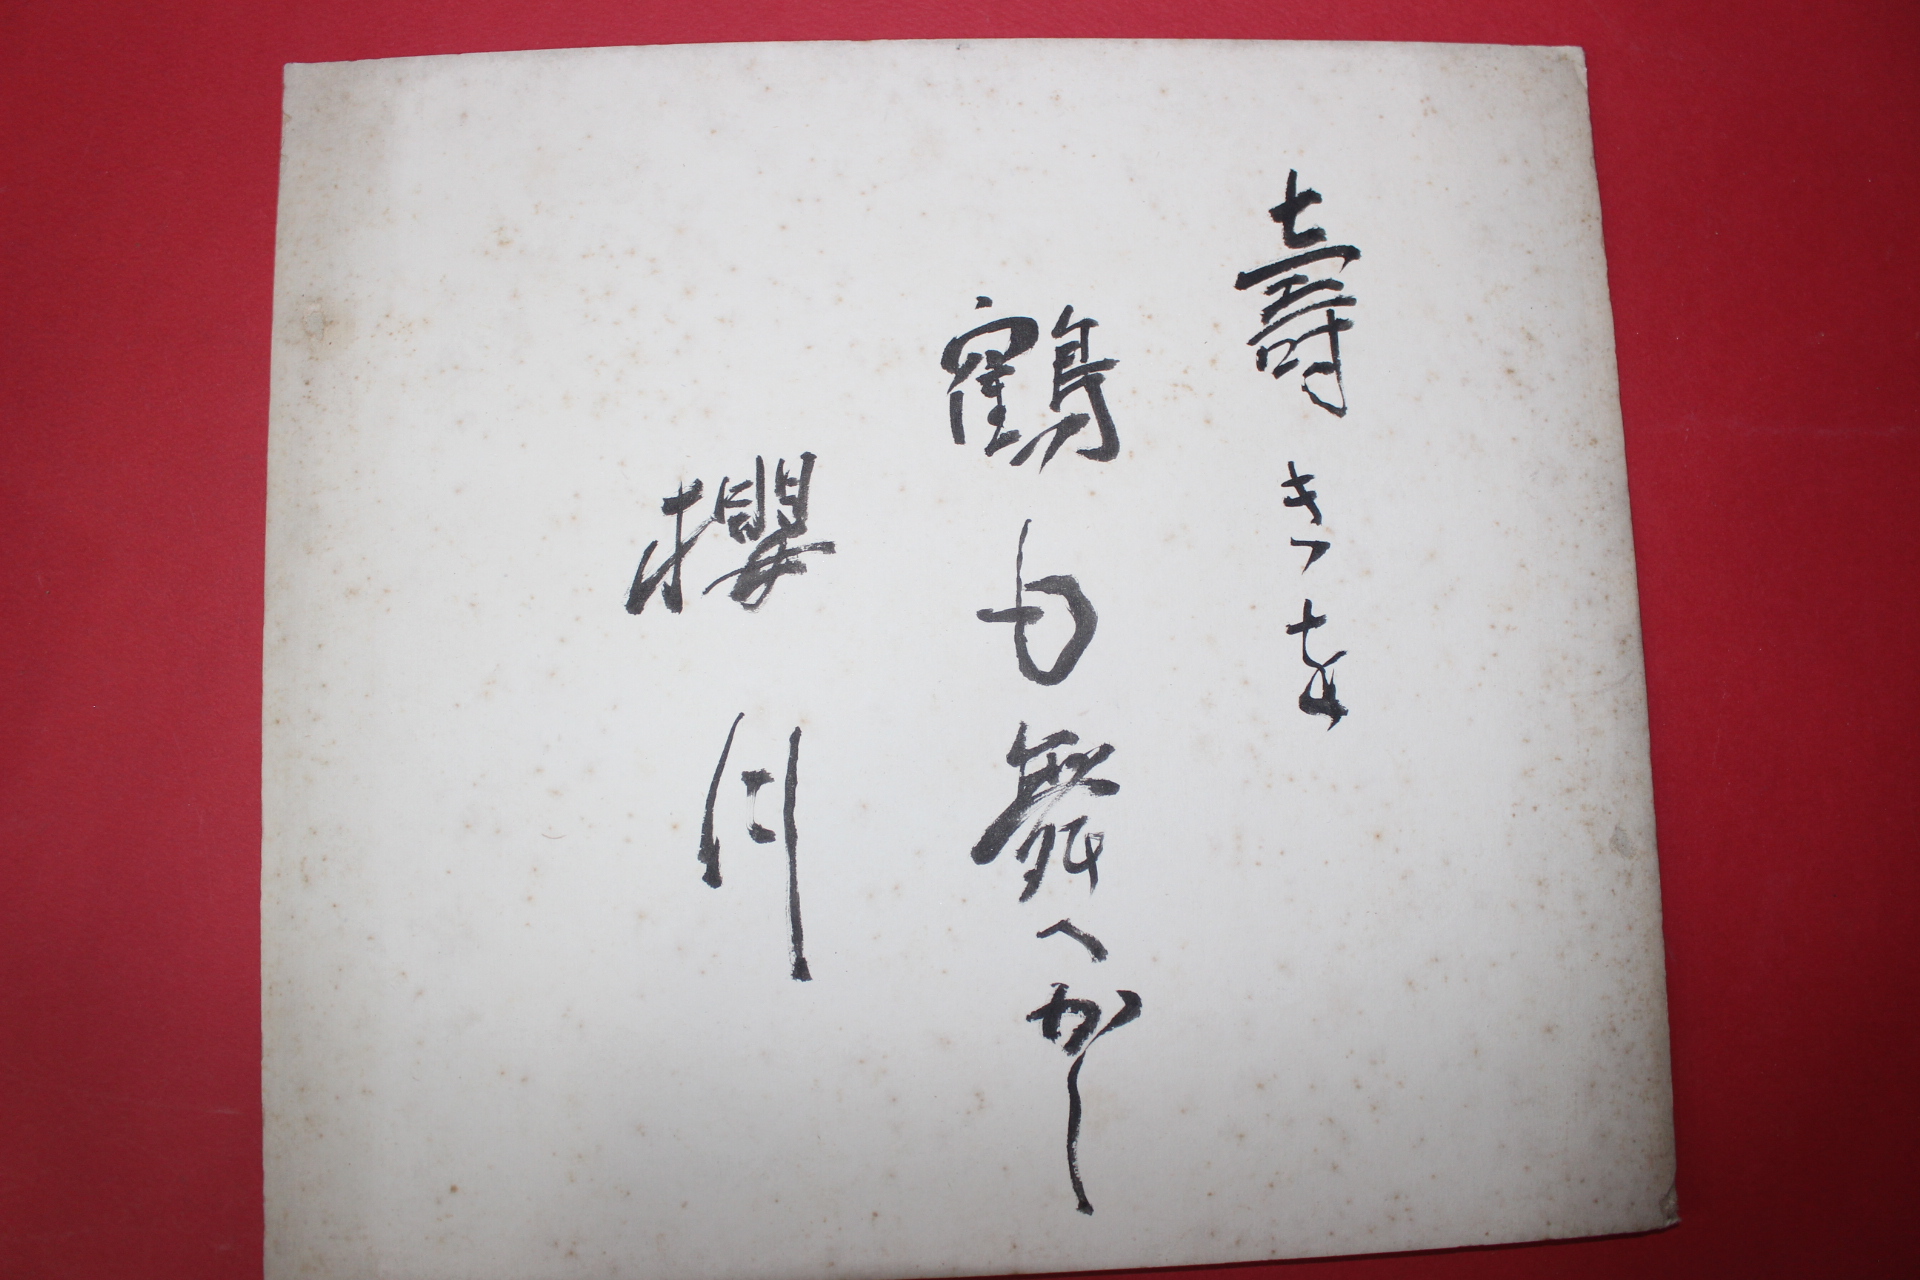 壽きを
鶴も舞へかし
櫻月